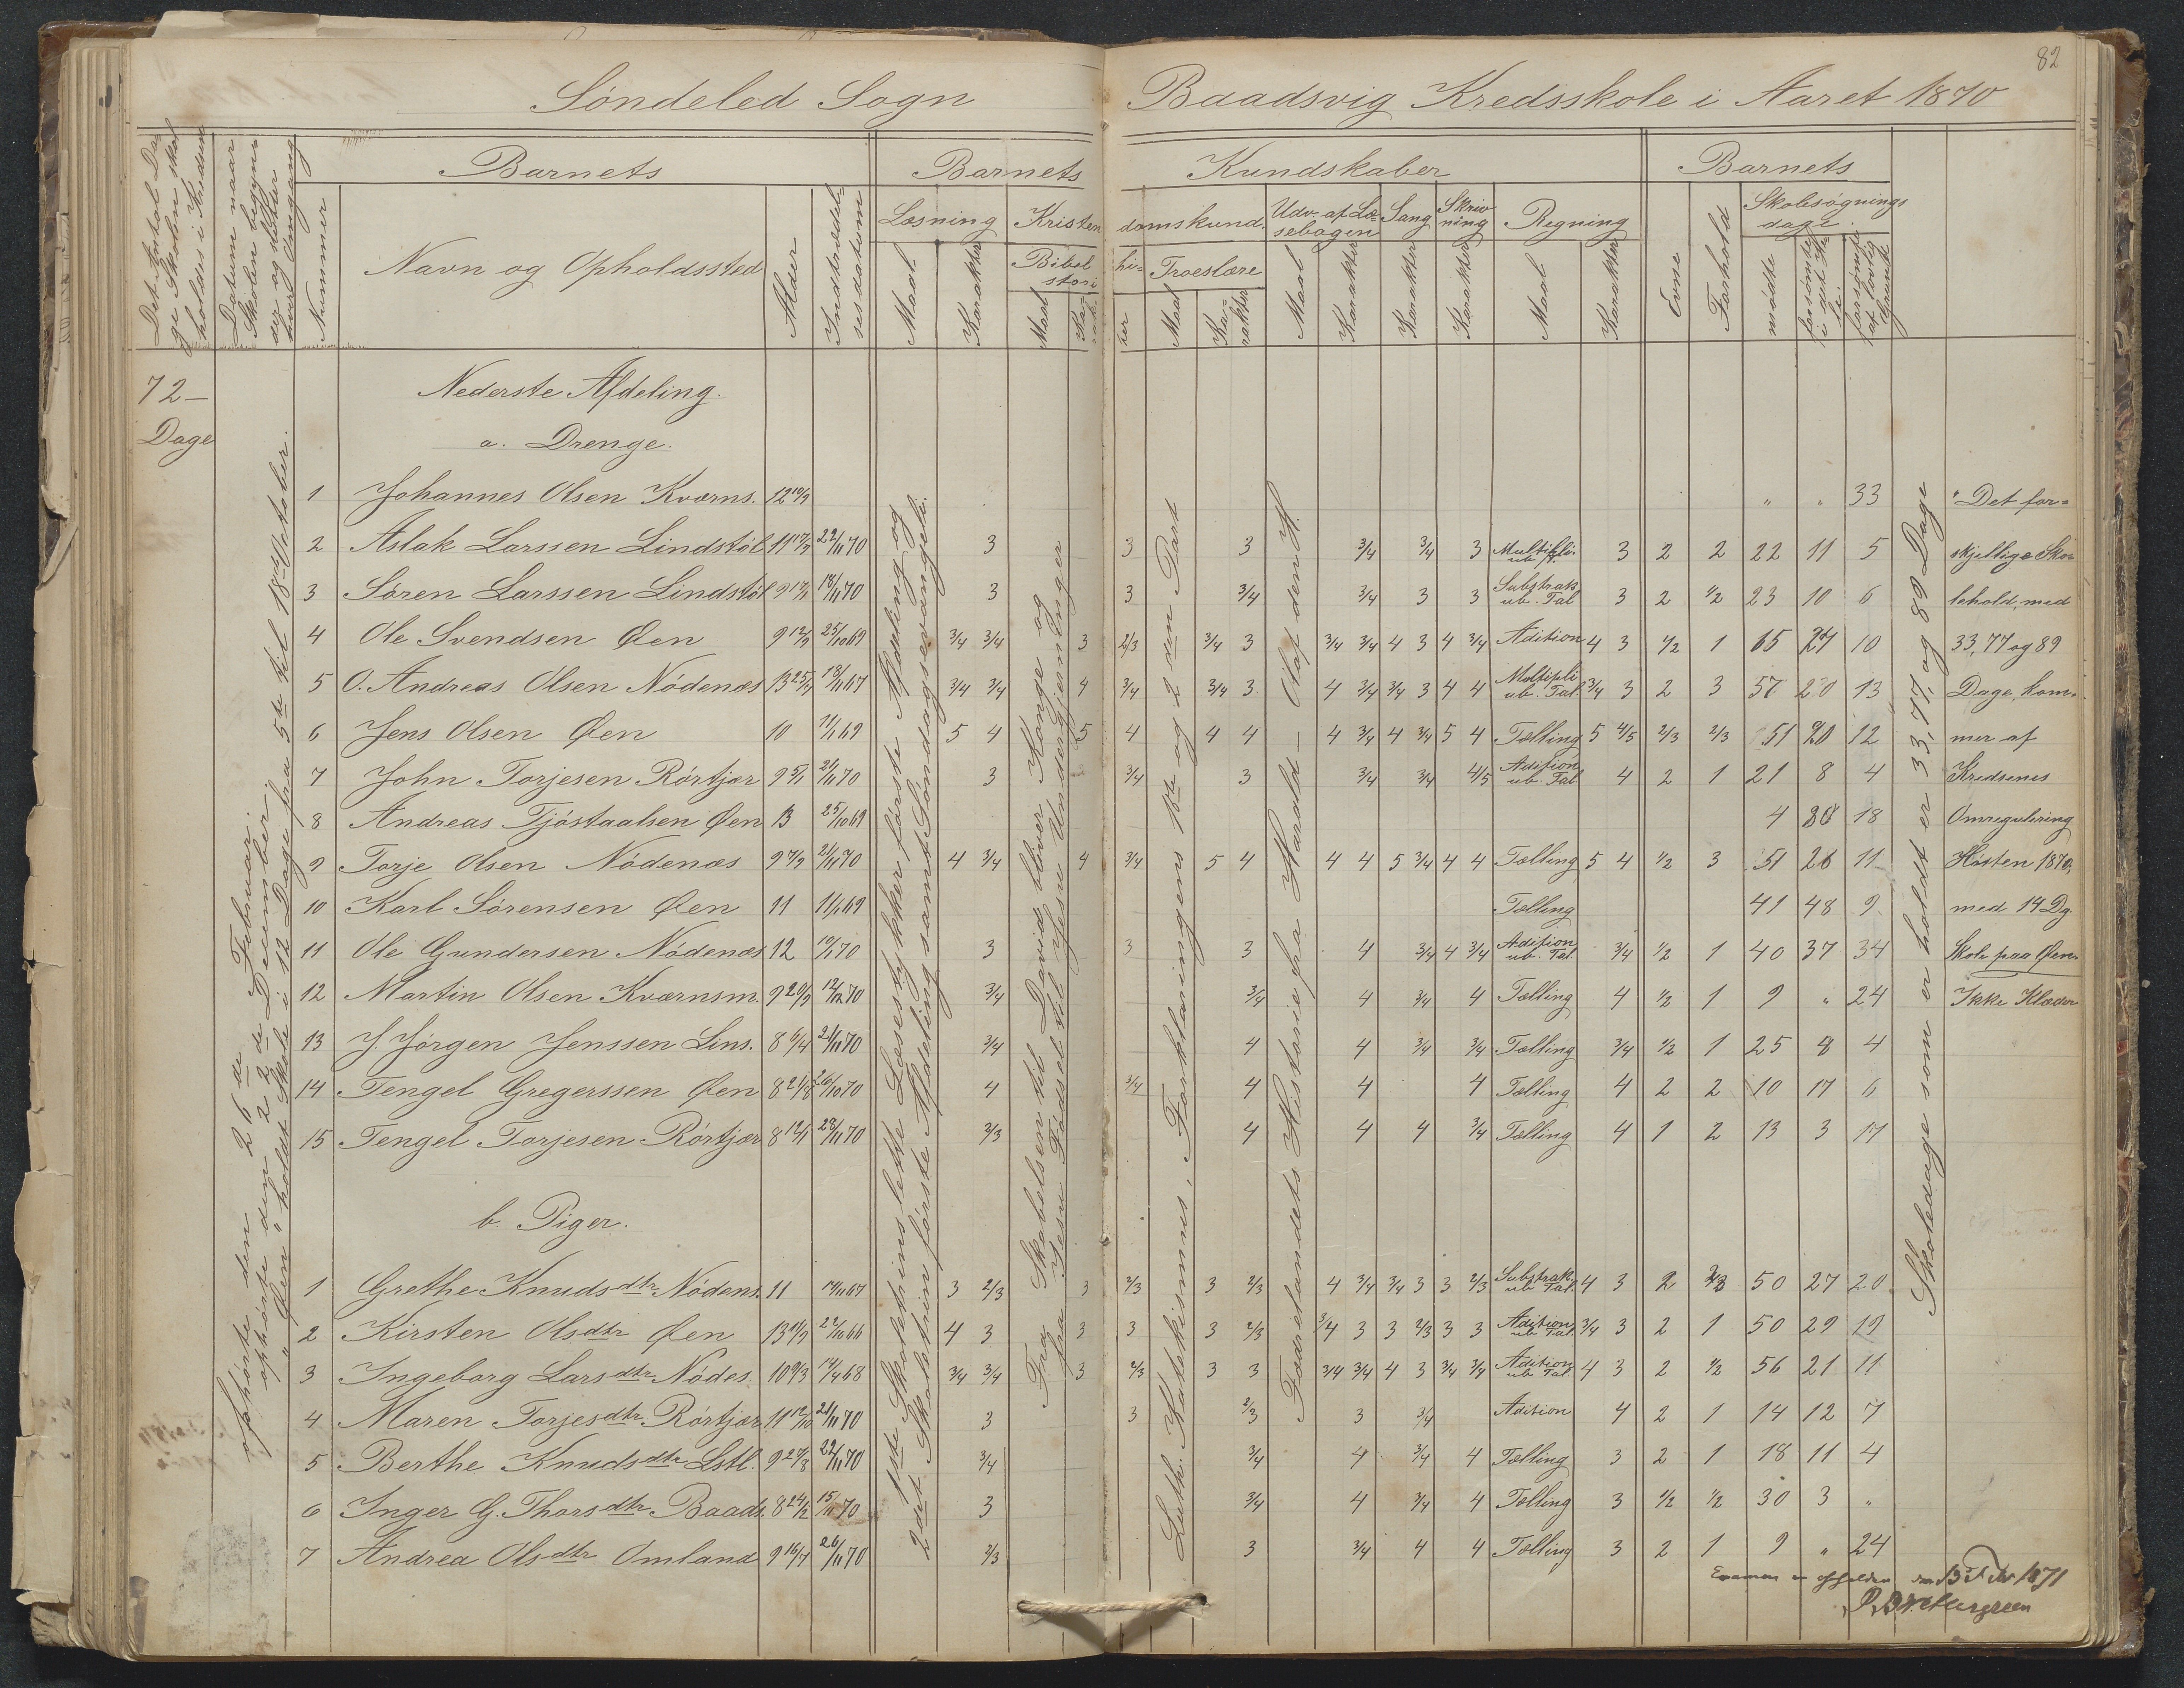 82
Søndeled Sogn Baadsvig Kredsskole i Aaret 1870
Det Antal Dage Skolen skal holdes i Kredsen
Datum naar Skolen begynder og slutter hver Omgang
Barnets
Nummer
Navn og Opholdssted
Alder
Indtrædelsesdatum
Barnets Kundskaber
Læsning
Maal
Karakter
Kristendomskund.
Bibelhistorier
Maal
Troeslære
Maal
Karakter
Udv. af Læsebogen
Maal
Karakter
Sang
Karakter
Skrivning
Karakter
Regning
Maal
Karakter
Barnets
Evne
Forhold
Skolesøgningsdage
mødte
forsømte i det Hele
forsømte af lovlig Grund
72-
Dage
Nederste Afdeling.
a. Drenge.
1 Johannes Olsen Kværns. 12 10/9 " " 33 "Det for=
2 Aslak Larssen Lindstøl 11 17/9 22/11 70 3 3 3 3/4 3/4 3 Multipli. ub. T. 3 2 2 22 11 5 skjellige Sko=
3 Søren Larssen Lindstøl 9 17/11 18/11 70 3 3 3/4 3/4 3 3 Substrak. ub. Tal 3 2 1/2 23 10 6 lehold, med
4 Ole Svendsen Øen 9 12/9 25/10 69 3/4 3/4 3 2/3 3/4 3 3/4 3/4 4 3 4 3/4 Adition 4 3 1/2 1 65 27 10 33, 77 og 89
5 O. Andreas Olsen Nødenæs 13 25/9 18/11 67 3/4 3/4 4 3/4 3/4 3 4 3/4 3/4 3 4 4 Multipli ub. Tal. 3/4 3 2 3 57 20 13 Dage, kom=
6 Jens Olsen Øen 10 11/1 69 5 4 5 4 4 4 4 3/4 4 3/4 5 4 Tælling 5 4/5 2/3 2/3 51 20 12 mer af
7 John Torjesen Rørtjær 9 5/1 21/11 70 3 3/4 3 3/4 3/4 4/5 Adition ub. Tal 4 2 1 21 8 4 Kredsenes
8 Andreas Tjøstaalsen Øen 13 25/10 69 4 28 18 Omregulering
9 Torje Olsen Nødenæs 9 7/9 21/11 70 4 3/4 4 3/4 5 4 4 4 5 3/4 4 4 Tælling 5 4 1/2 3 51 26 11 Høsten 1870,
10 Karl Sørensen Øen 11 11/1 69 Tælling 41 48 9 med 14 Dg.
11 Ole Gundersen Nødenæs 12 10/1 70 3 3 3 4 3/4 4 3/4 Adition ub. Tal. 3/4 1/2 1 40 37 34 Skole paa Øen
12 Martin Olsen Kværnsm. 9 20/9 12/12 70 3/4 3/4 4 3/4 4 Tælling 4 1/2 1 9 " 24 Ikke Klæder
13 J. Jørgen Jenssen Lins. 8 6/4 21/11 70 3/4 4 4 3/4 3/4 Tælling 3/4 1/2 1 25 8 4
14 Tengel Gregerssen Øen 8 21/8 26/10 70 4 3/4 4 4 4 Tælling 4 2 2 10 17 6
15 Tengel Torjesen Rørtjær 8 12/1 28/11 70 2/3 4 4 4 3/4 Tælling 4 1 2 13 3 17
b. Piger.
1 Grethe Knudsdtr Nødens. 11 14/11 67 3 2/3 3 2/3 3 2/3 4 3/4 3/4 3 3 2/3 Substrak. ub Tal. 4 3 2 50 27 20
2 Kirsten Olsdtr Øen 13 11/9 22/10 66 4 3 3 3 3 2/3 3/4 3 3 2/3 3 3 Adition ub Tal. 3/4 3 2 1 50 29 19
3 Ingeborg Larsdtr Nødes. 10 9/3 14/4 68 3/4 3/4 3 2/3 3 3 3/4 3/4 4 3 3/4 3/4 Adition ub Tal 4 3 2 1/2 56 21 11
4 Maren Torjesdtr Rørtjær 11 12/10 21/11 70 3 3 2/3 3 3/4 Adition 4 2 1 14 12 7
5 Berthe Knudsdtr Lstl. 9 27/8 22/11 70 3/4 3/4 4 3/4 4 Tælling 3 2 1 18 11 4
6 Inger G. Thorsdtr Baads. 8 24/12 15/11 70 3 3/4 4 3/4 4 Tælling 3 1/2 1/2 30 3 "
7 Andrea Olsdtr Omland 9 16/7 26/11 70 2/3 3 3/4 4 4 Tælling 3 2 1 9 " 24
ophørte den 26de Februar.
ophørte den 22de December.
" Øen " holdt Skole i 12 Dage fra 5te til 18de October.
1ste Skoletrins lette Læsestykker første Afdeling og
2det Skoletrin første Afdeling samt Søndagsevangeli.
Fra Skabelsen til David bliver Konge og
fra Jesu Fødsel til Jesu Undergjerninger
Luth. Katekismus, Forklaringens 1ste og 2den Part
Fædrelandets Historie fra Harald – Olaf den H.
Skoledage som er holdt er 33, 77, og 89 Dage
Examen er afholden den 13de Febr 1871